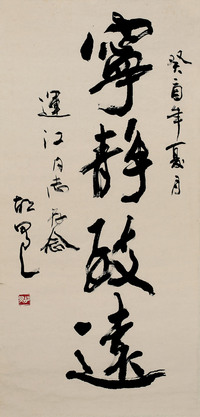 癸酉年夏月
寧靜致遠
運江同志存念